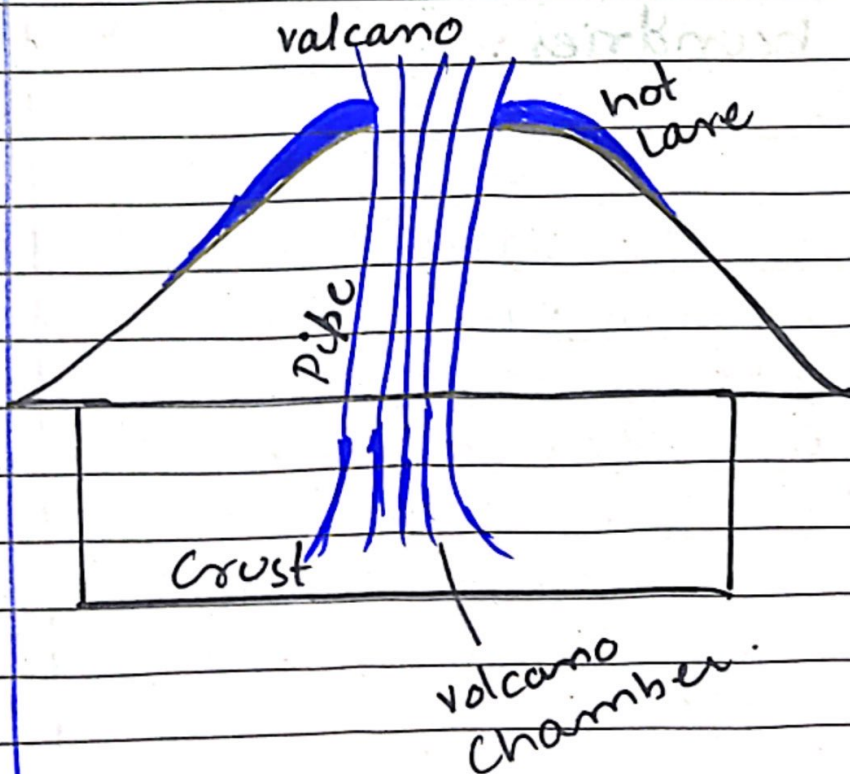 valcano
hot
Lave
Pipe
Crust
volcano
chamber.